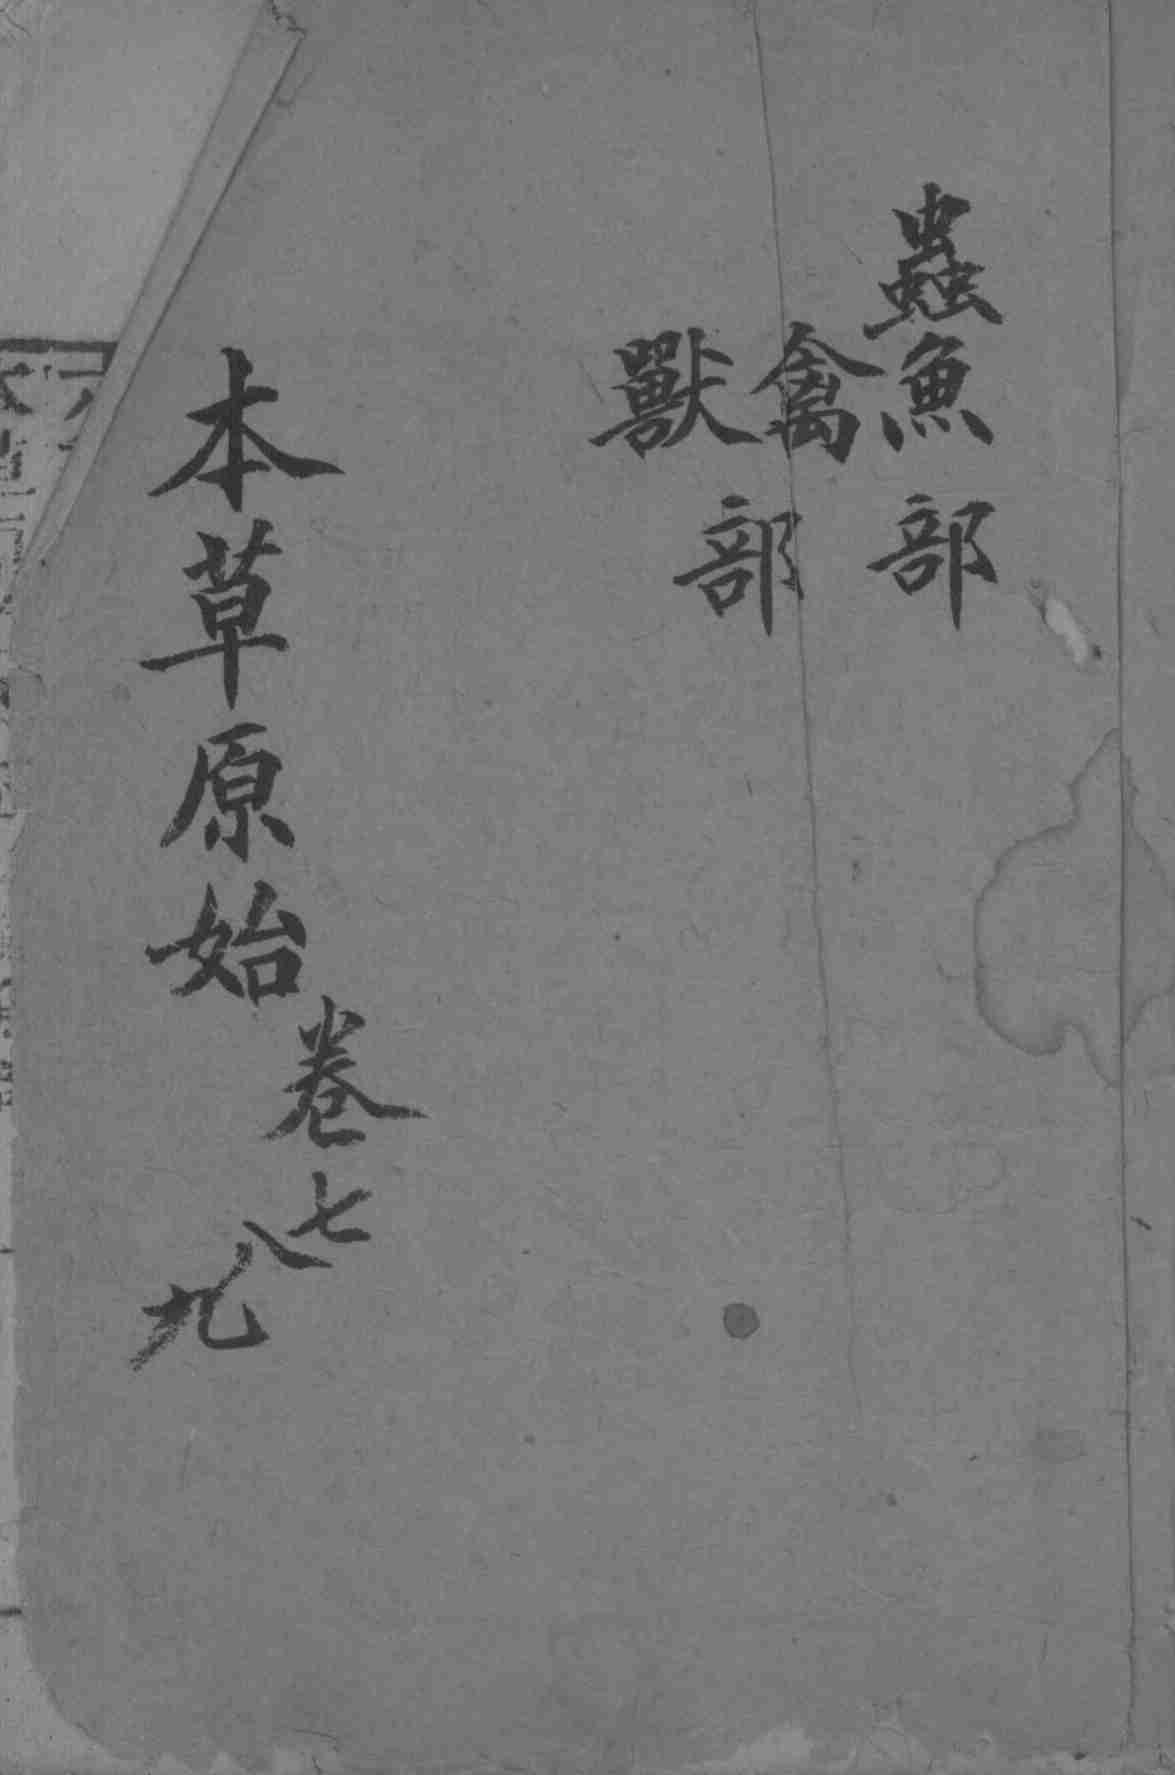 蟲魚部
禽獸部
本草原始卷七八九